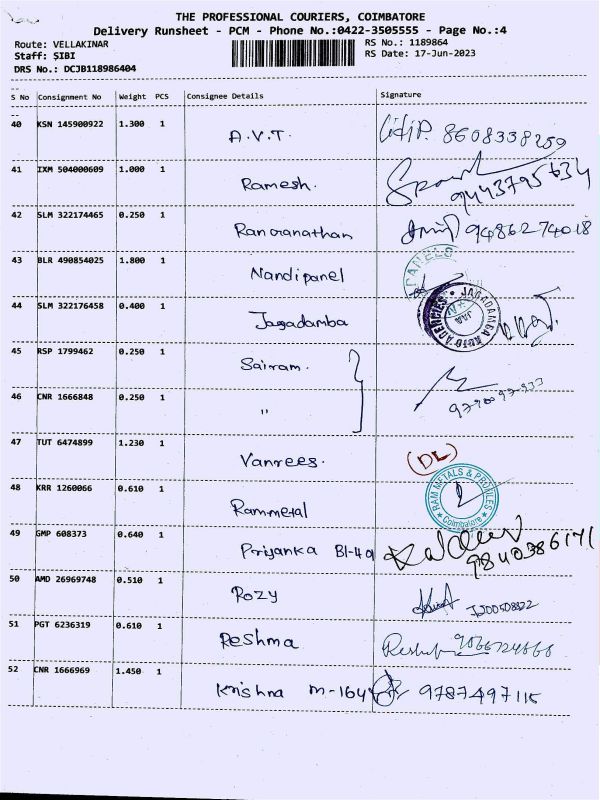 THE PROFESSIONAL COURIERS, COIMBATORE
Delivery Runsheet - PCM - Phone No.:0422-3505555 - Page No.:4
Route: VELLAKINAR RS No.: 1189864
Staff: SIBI RS Date: 17-Jun-2023
DRS No.: DCJB118986404
S No Consignment No Weight PCS Consignee Details Signature
40 KSN 145900922 1.300 1 A.V.T. 8608338259
41 IXM 504000609 1.000 1 Ramesh. 9443795634
42 SLM 322174465 0.250 1 Ranganathan 9486274018
43 BLR 490854025 1.800 1 Nandipanel
PANELS
44 SLM 322176458 0.400 1 Jagadamba
JAGADAMBA AUTO AGENCIES
45 RSP 1799462 0.250 1 Sairam.
46 CNR 1666848 0.250 1 "
47 TUT 6474899 1.230 1 Vanrees. (DL)
48 KRR 1260066 0.610 1 Rammetal
RAM METALS & PROFILES
Coimbatore
49 GMP 608373 0.640 1 Priyanka Bl-4a 9840386141
50 AMD 26969748 0.510 1 Rozy
51 PGT 6236319 0.610 1 Reshma
52 CNR 1666969 1.450 1 Krishna M-164 9787497115